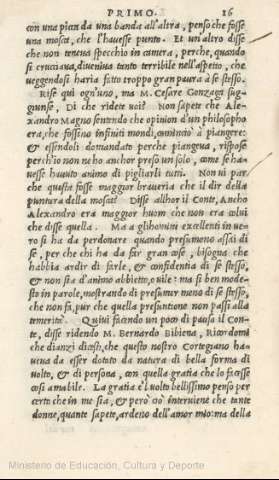 PRIMO. 16
con una pica da una banda all'altra, pensò che fosse
una mosca, che l'havesse punto. Et un'altro disse
che non teneva specchio in camera, perche, quando
si crucciava, diveniva tanto terribile nell'aspetto, che
veggendosi haria fatto troppo gran paura à se stesso.
Rise quì ogn'uno, ma M. Cesare Gonzaga sug-
giunse, Di che ridete voi? Non sapete che Ale-
xandro Magno sentendo che opinion d'un philosopho
era, che fossino infiniti mondi, cominciò à piangere:
& essendoli domandato perche piangeva, rispose
perch'io non ne ho anchor preso un solo, come se ha-
vesse havuto animo di pigliarli tutti. Non vi par
che questa fosse maggior braveria che il dir della
puntura della mosca? Disse allhor il Conte, Ancho
Alexandro era maggior huom che non era colui
che disse quella. Ma a glihomini excellenti in ve-
ro si ha da perdonare quando presumeno assai di
se, per che chi ha da far gran cose, bisogna che
habbia ardir di farle, & confidentia di se stesso,
& non sia d'animo abbietto, o vile: ma si ben mode-
sto in parole, mostrando di presumer meno di se stesso,
che non fa, pur che quella presuntione non passi alla
temerità. Quivi facendo un poco di pausa il Con-
te, disse ridendo M. Bernardo Bibiena, Ricordomi
che dianzi dicesti, che questo nostro Cortegiano ha-
veva da esser dotato da natura di bella forma di
volto, & di persona, con quella gratia che lo facesse
cosi amabile. La gratia e'l volto bellissimo penso per
certo che in me sia, & però ciò interviene che tante
donne, quante sapete, ardeno dell'amor mio: ma della
Ministerio de Educación, Cultura y Deporte